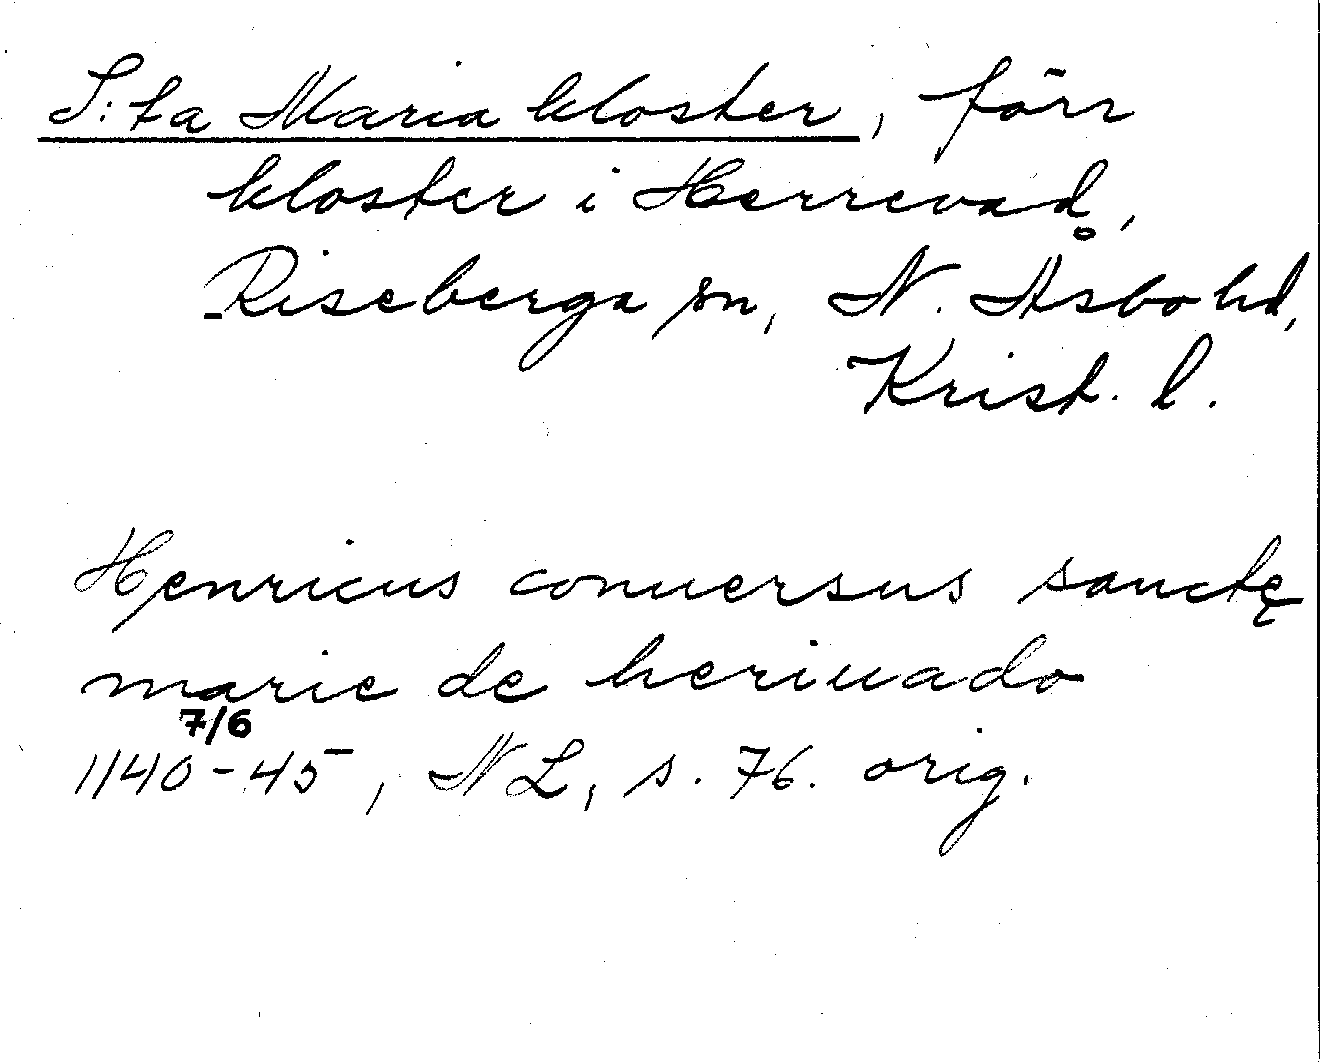 S:ta Maria kloster, förr
kloster i Herrevad,
Riseberga sn, N. Åsbo hd,
Krist. l.
Henricus conuersus sanctę
marie de heriuado
7/6
1140-45, NL, s. 76. orig.